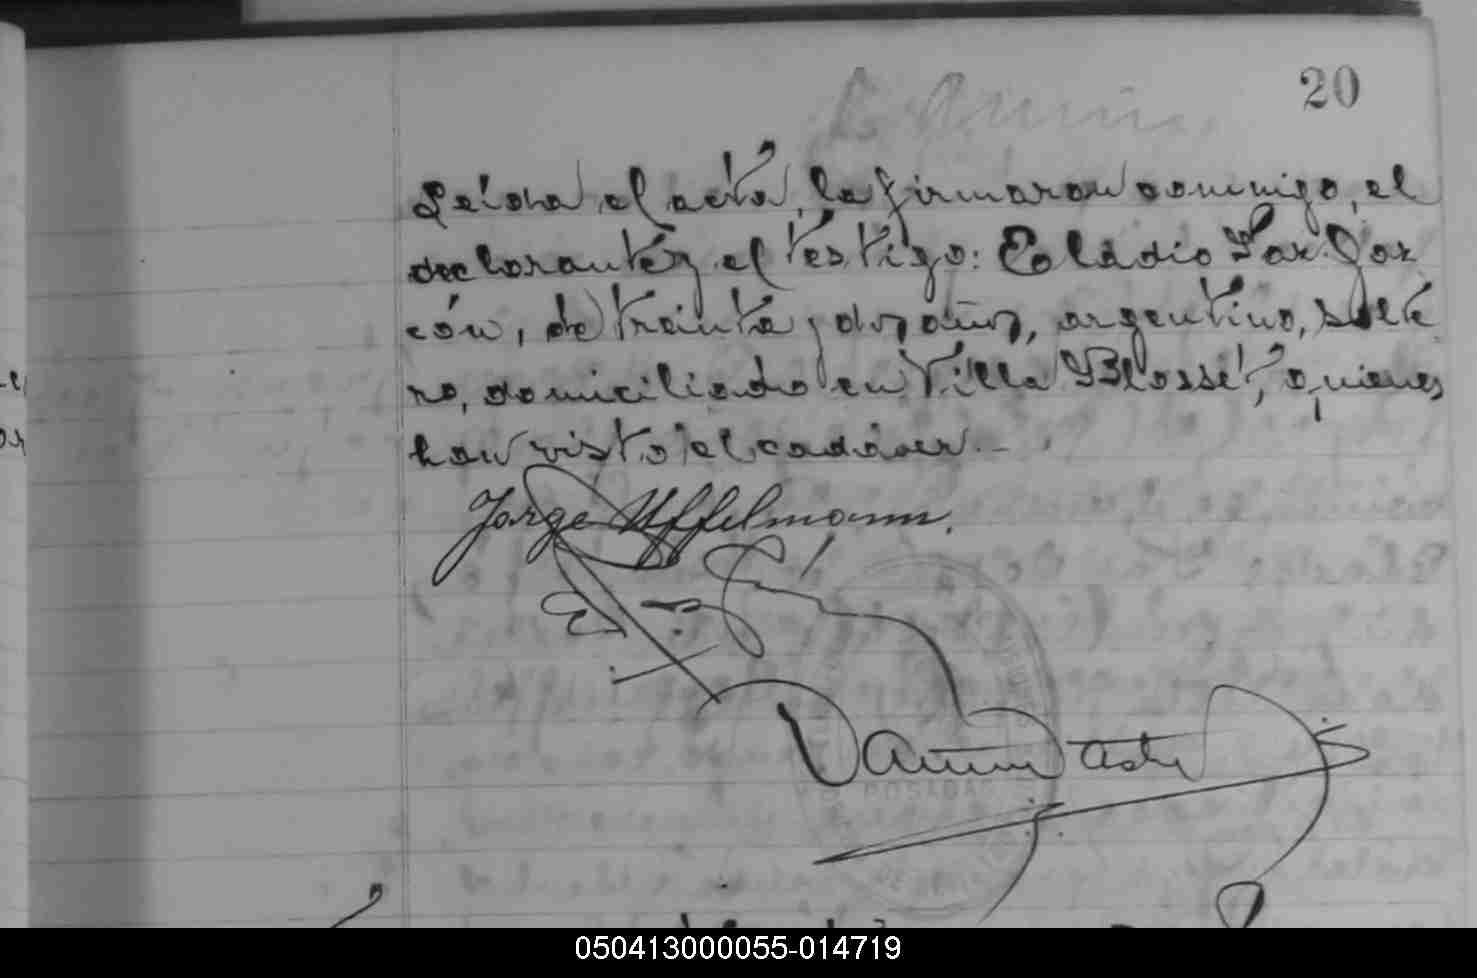 20
Leída el acta, la firmaron conmigo, el
declarante y el testigo: Eoladio Gar
cón, de treinta y dos años, argentino, solte
ro, domiciliado en Villa Blosset, quienes
han visto el cadáver.
Jorge Uffelmann.
POSADAS
050413000055-014719